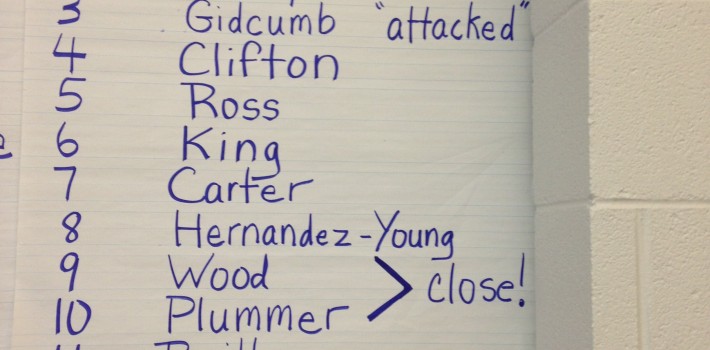 3 Gidcumb "attacked"
4 Clifton
5 Ross
6 King
7 Carter
8 Hernandez-Young
9 Wood
10 Plummer > close!